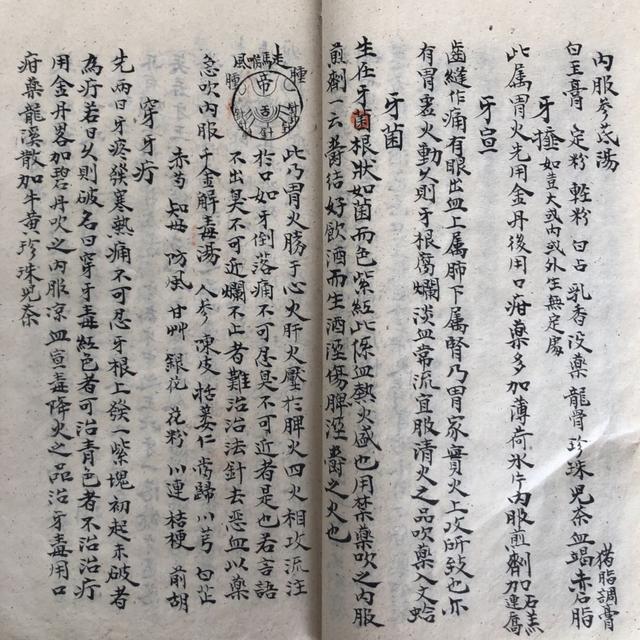 內服參苓湯
白玉膏 定粉 輕粉 白占 乳香 沒藥 龍骨 珍珠 兒茶 血竭 赤石脂 猪脂調膏
牙㨃 如豆大或內或外生無定處
此属胃火先用金丹後用口疳藥多加薄荷氷片內服煎劑加石羔連喬
牙宣
齒縫作痛有眼出血上属肺下属腎乃胃家實火上攻所致也亦
有胃裏火動久則牙根腐爛淡血常流宜服清火之品吹藥入文蛤
牙菌
生在牙菌根狀如菌而色紫紅此係血熱火盛也用禁藥吹之內服
煎劑一云欝結好飲酒而生酒溼傷脾溼欝之火也
走馬喉風
腫 腫
帝 針 針
此乃胃火勝于心火肝火壓於脾火四火相攻流注
於口如牙倒落痛不可忍臭不可近者是也若言語
不出臭不可近爛不止者難治治法針去惡血以藥
急吹內服 千金解毒湯 人參 陳皮 栝蔞仁 當歸 川芎 白芷
赤芍 知母 防風 甘艸 銀花 花粉 川連 桔梗 前胡
穿牙疔
先兩日牙疼發寒熱痛不可忍牙根上發一紫塊初起未破者
為疔若日久則破名曰穿牙毒紅色者可治青色者不治治疔
用金丹畧加碧丹吹之內服凉血宣毒降火之品治牙毒用口
疳藥龍溪散加牛黃珍珠兒茶